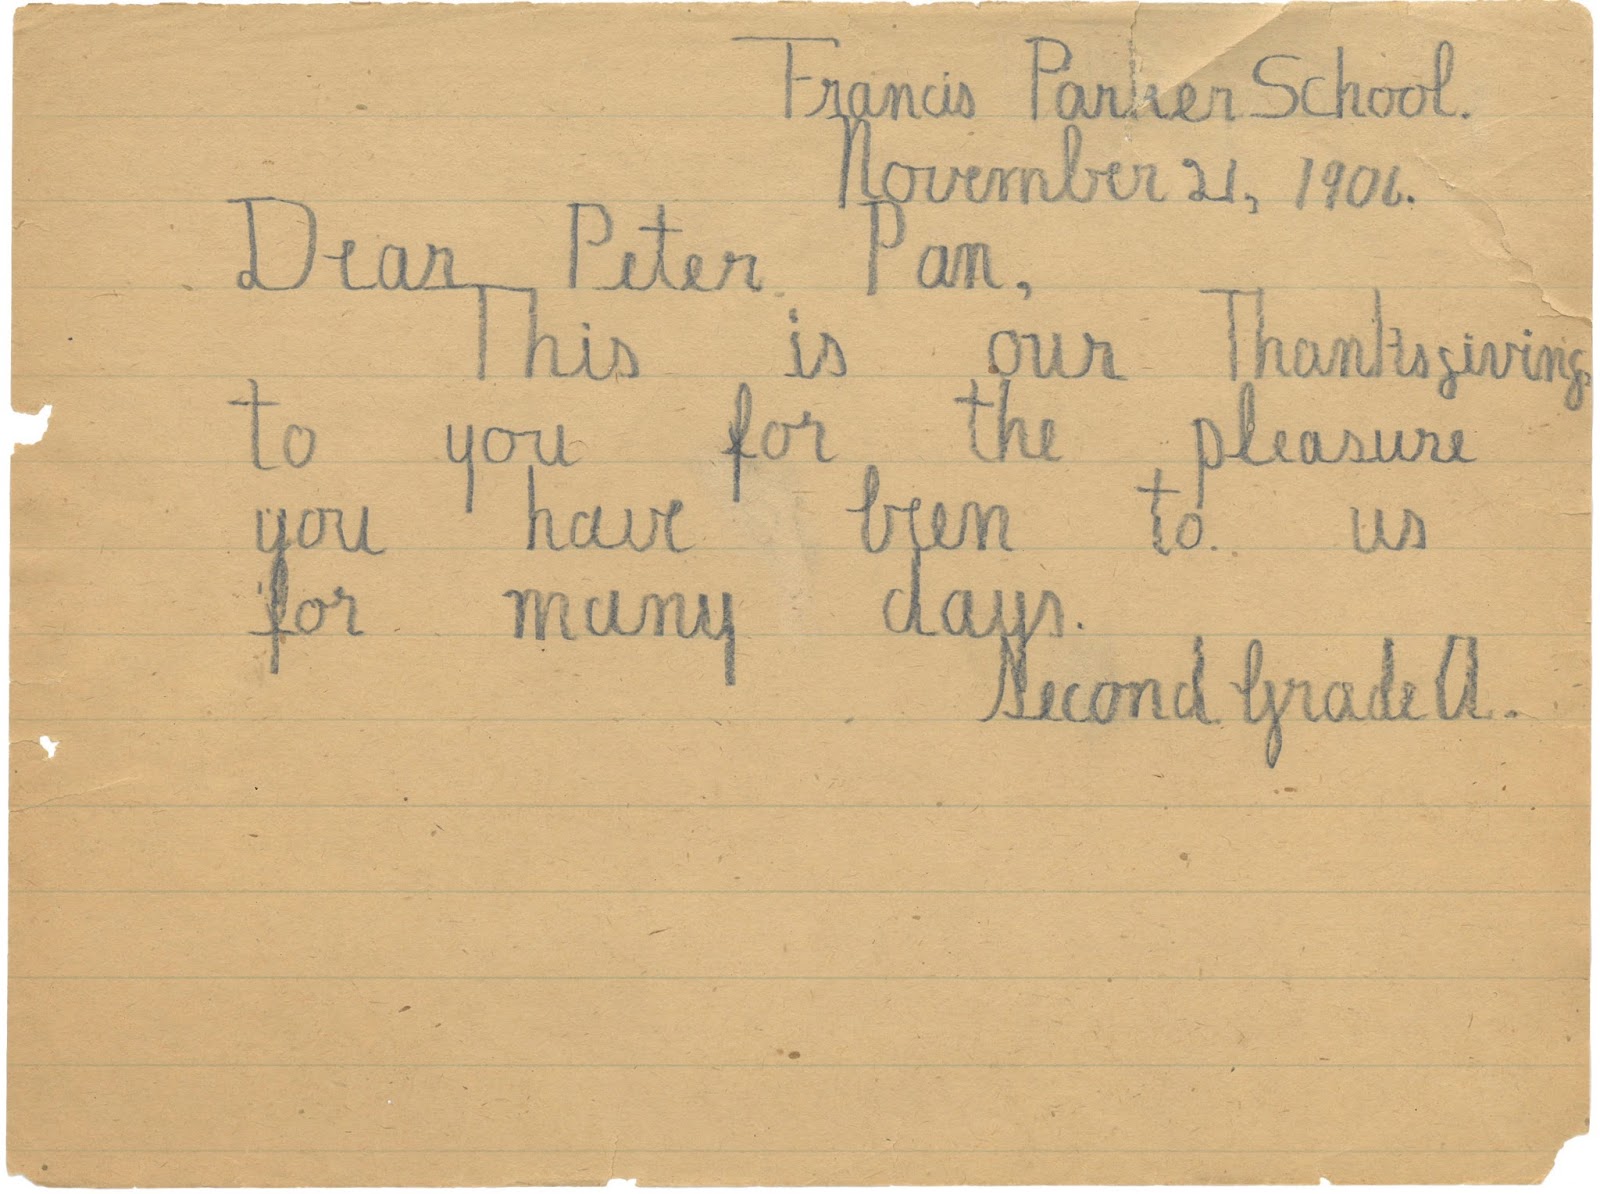 Francis Parker School.
November 21, 1906.
Dear Peter Pan,
This is our Thanksgiving
to you for the pleasure
you have been to us
for many days.
Second Grade A.